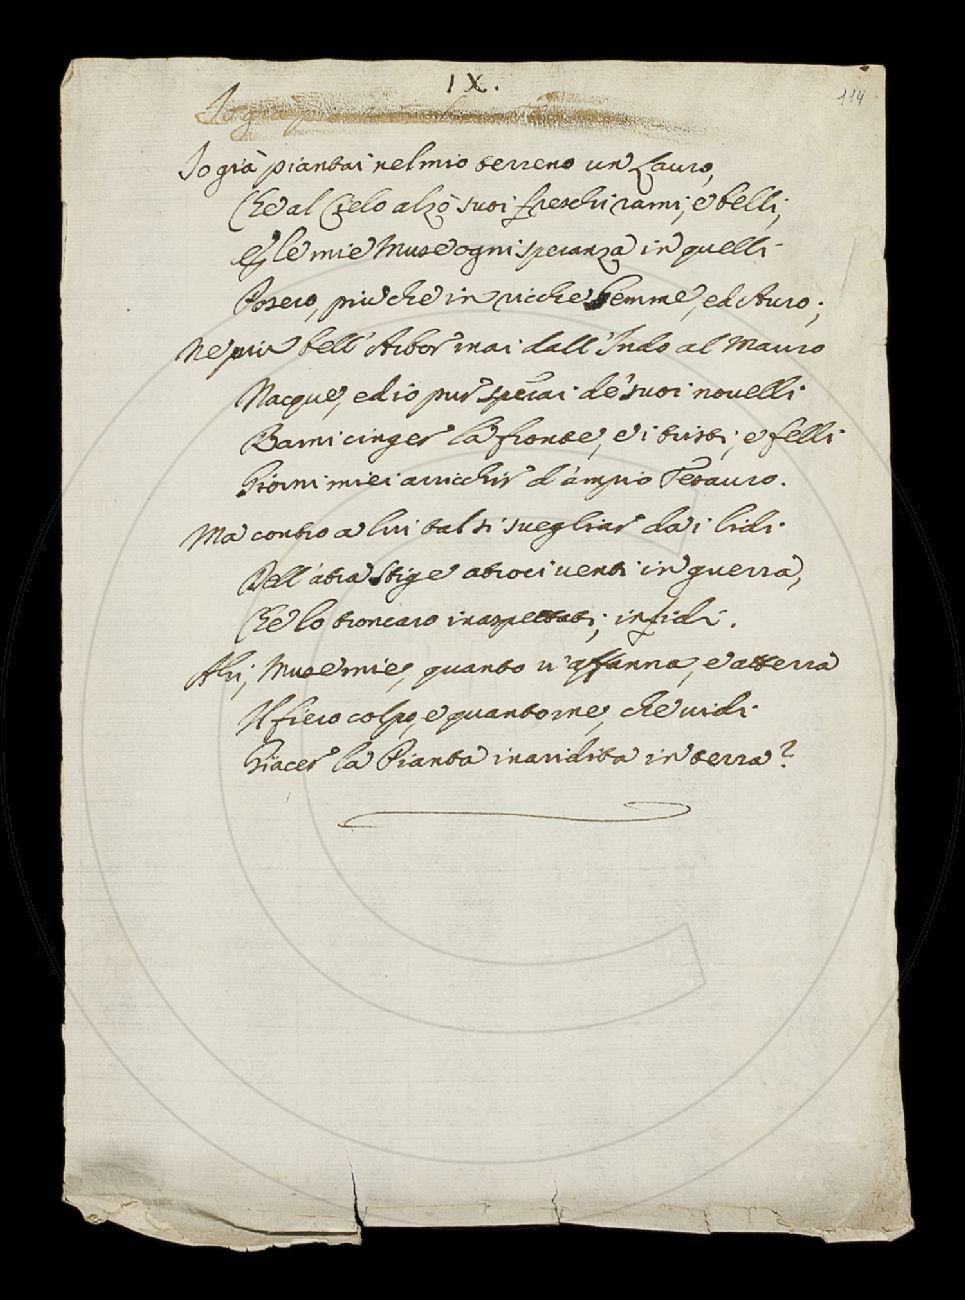 IX.
114
Io già
Io già piantai nel mio terreno un Lauro,
Che al Cielo alzò suoi freschi rami, e belli;
E le mie Muse ogni speranza in quelli
Posero, più che in ricche Gemme, ed Auro;
Ne più bell' Arbor mai dall' Indo al Mauro
Nacque, ed io pur sperai de' suoi novelli
Rami cinger la fronte, e i tristi, e felli
Giorni miei arricchir d' ampio Tesauro.
Ma contro a lui tal si svegliar dai lidi
Dell' atra Stige atroci venti in guerra,
Che lo troncaro inaspettati, infidi.
Ahi, Muse mie, quanto v' affanna, e atterra
Il fiero colpo, e quanto me, che vidi
Giacer la Pianta inaridita in terra?